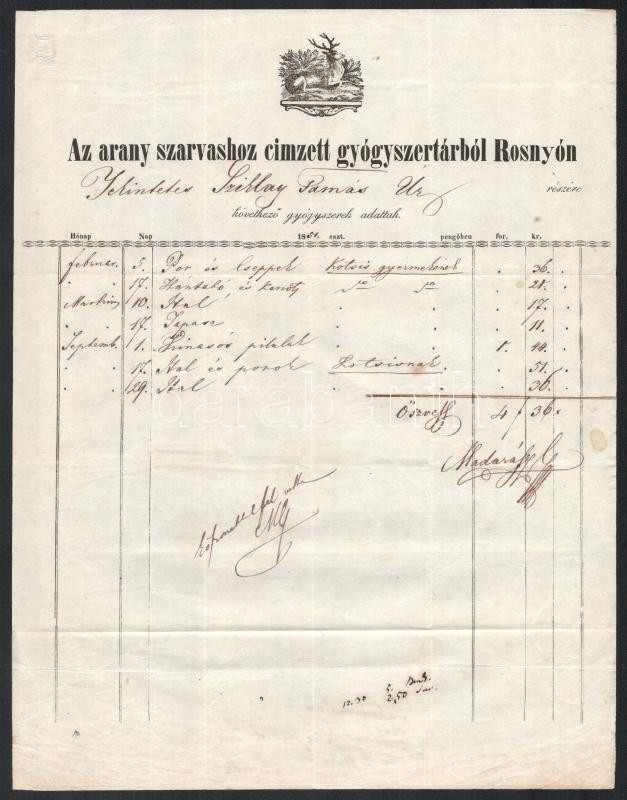 Az arany szarvashoz cimzett gyógyszertárból Rosnyón
Tekintetes Sziklay Tamás Úr részére
következő gyógyszerek adattak.
Hónap Nap 1851. eszt. pengőben for. kr.
februar. 5. Por és Cseppek Kotsis gyermekének . 36.
. 17. és kenőts do do . 21.
Martius 10. Ital . . . 17.
. 17. Tapasz . . . 11.
Septemb. 1. Chinasós pilulak . . 1. 44.
. 17. Ital és porok Kotsisnak . 51.
. 29. Ital . . 36.
Öszvess. 4 f 36 x
Madarász G
MG
12.30 5.
2,50
darabanth